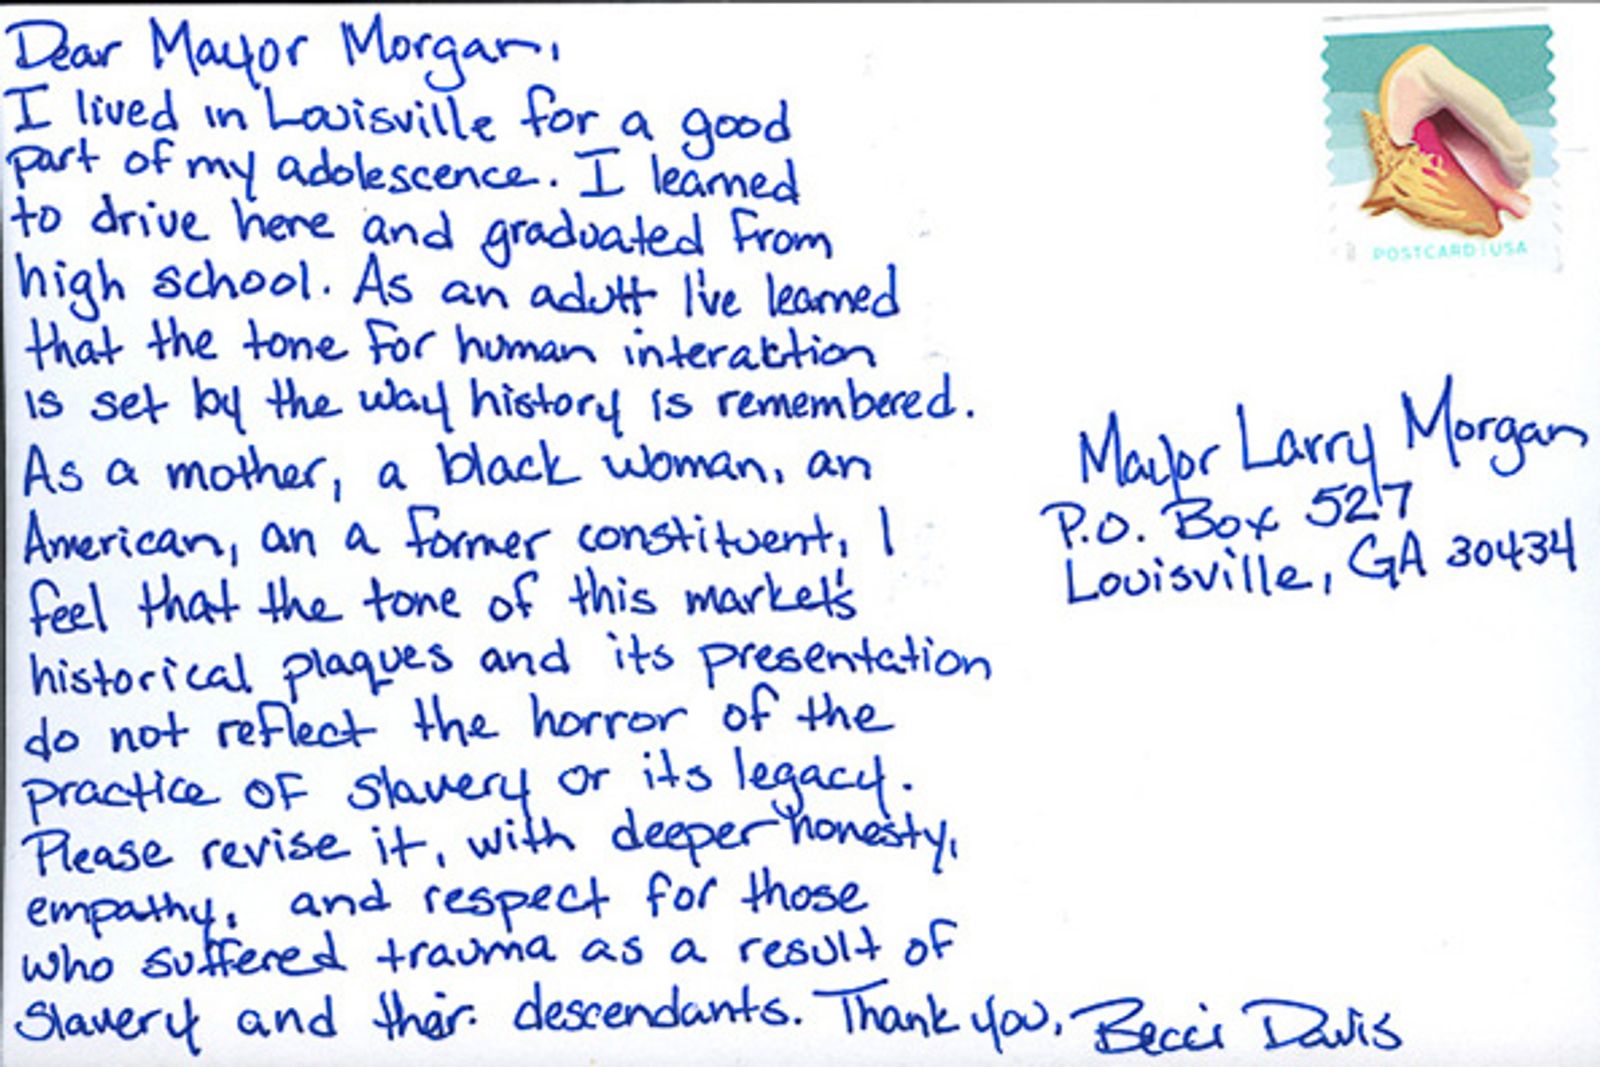 Dear Mayor Morgan,
I lived in Louisville for a good
part of my adolescence. I learned
to drive here and graduated from
high school. As an adult I've learned
that the tone for human interaction
is set by the way history is remembered.
As a mother, a black woman, an
American, an a former constituent, I
feel that the tone of this market's
historical plaques and its presentation
do not reflect the horror of the
practice of slavery or its legacy.
Please revise it, with deeper honesty,
empathy, and respect for those
who suffered trauma as a result of
slavery and their descendants. Thank you, Becci Davis
POSTCARD | USA
Mayor Larry Morgan
P.O. Box 527
Louisville, GA 30434